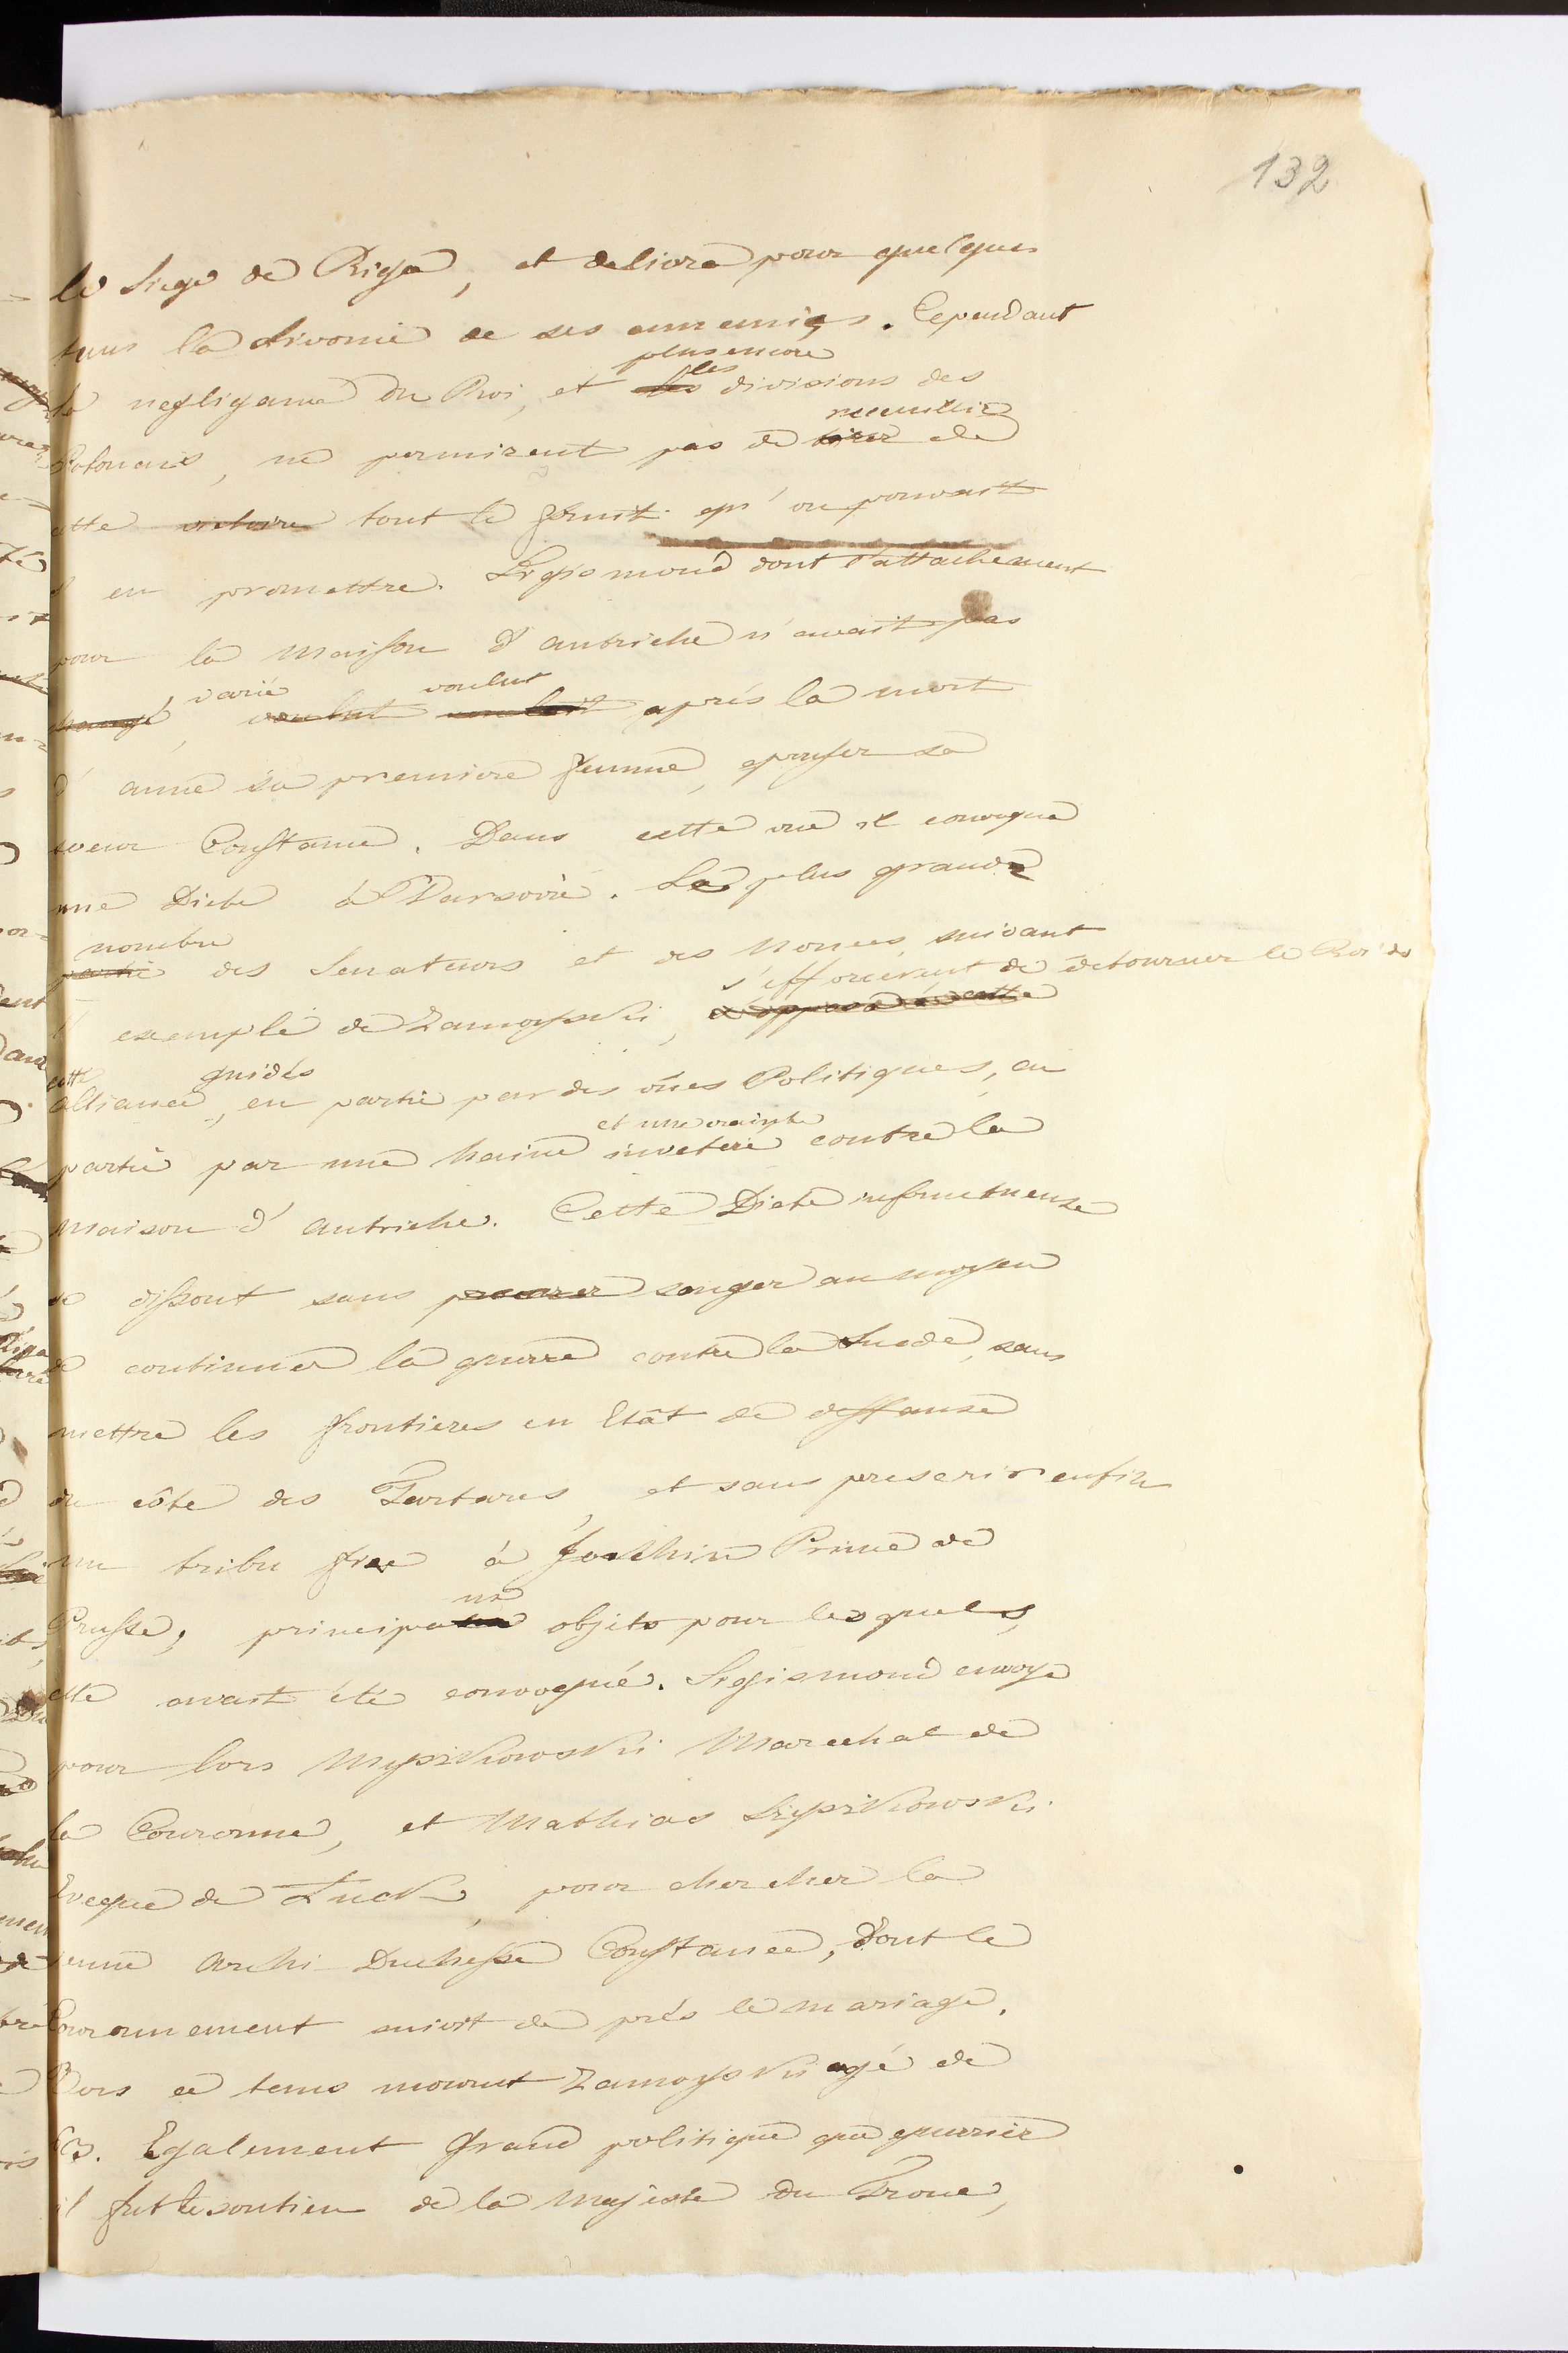 132
le Siege de Riga, et delivra pour quelques
tems la Livonie de ses ennemis. Cependant
plus encore
la negligance du Roi, et les divisions des
recueillir
Polonais, ne permirent pas de tirer de
cette victoire tout le fruit qu'on pouvait
s'en promettre. Sigismond dont l'attachement
pour la Maison d'autriche n'avait pas
varié voulut
changé, voulut voulait après la mort
d'anne sa premiere femme, epouser sa
soeur Constance. Dans cette vue il convoqua
une Diete à Varsovie. Le plus grand
nombre
partie des Senateurs et des Nonces suivant
s'efforcèrent de detourner le Roi de
l'exemple de Zamoyski, s'opposa à cette
cette guidés
alliance, en partie par des vües Politiques, en
et une crainte
partie par une haine inveteré contre la
maison d'autriche. Cette Diete infructueuse
se dissout sans songer au moyen
de continuer la guerre contre la Suede, sans
mettre les frontieres en Etât de deffanse
du côté des Tartares, et sans prescrir enfin
un tribu fixe à Joachim Prince de
ux
Prusse, principa objets pour lesquels,
elle avait été convoqué. Sigismond envoya
pour lors Myszkowski Marechal de
la Couronne, et Mathias
Eveque de Luck, pour chercher la
jeune Archi-Duchesse Constance, dont le
Couronnement suivit de près le mariage.
Vers ce tems mourut Zamoyski agé de
63. Egalement Grand politique que guerrier
il fut le soutien de la Majesté du Trone,